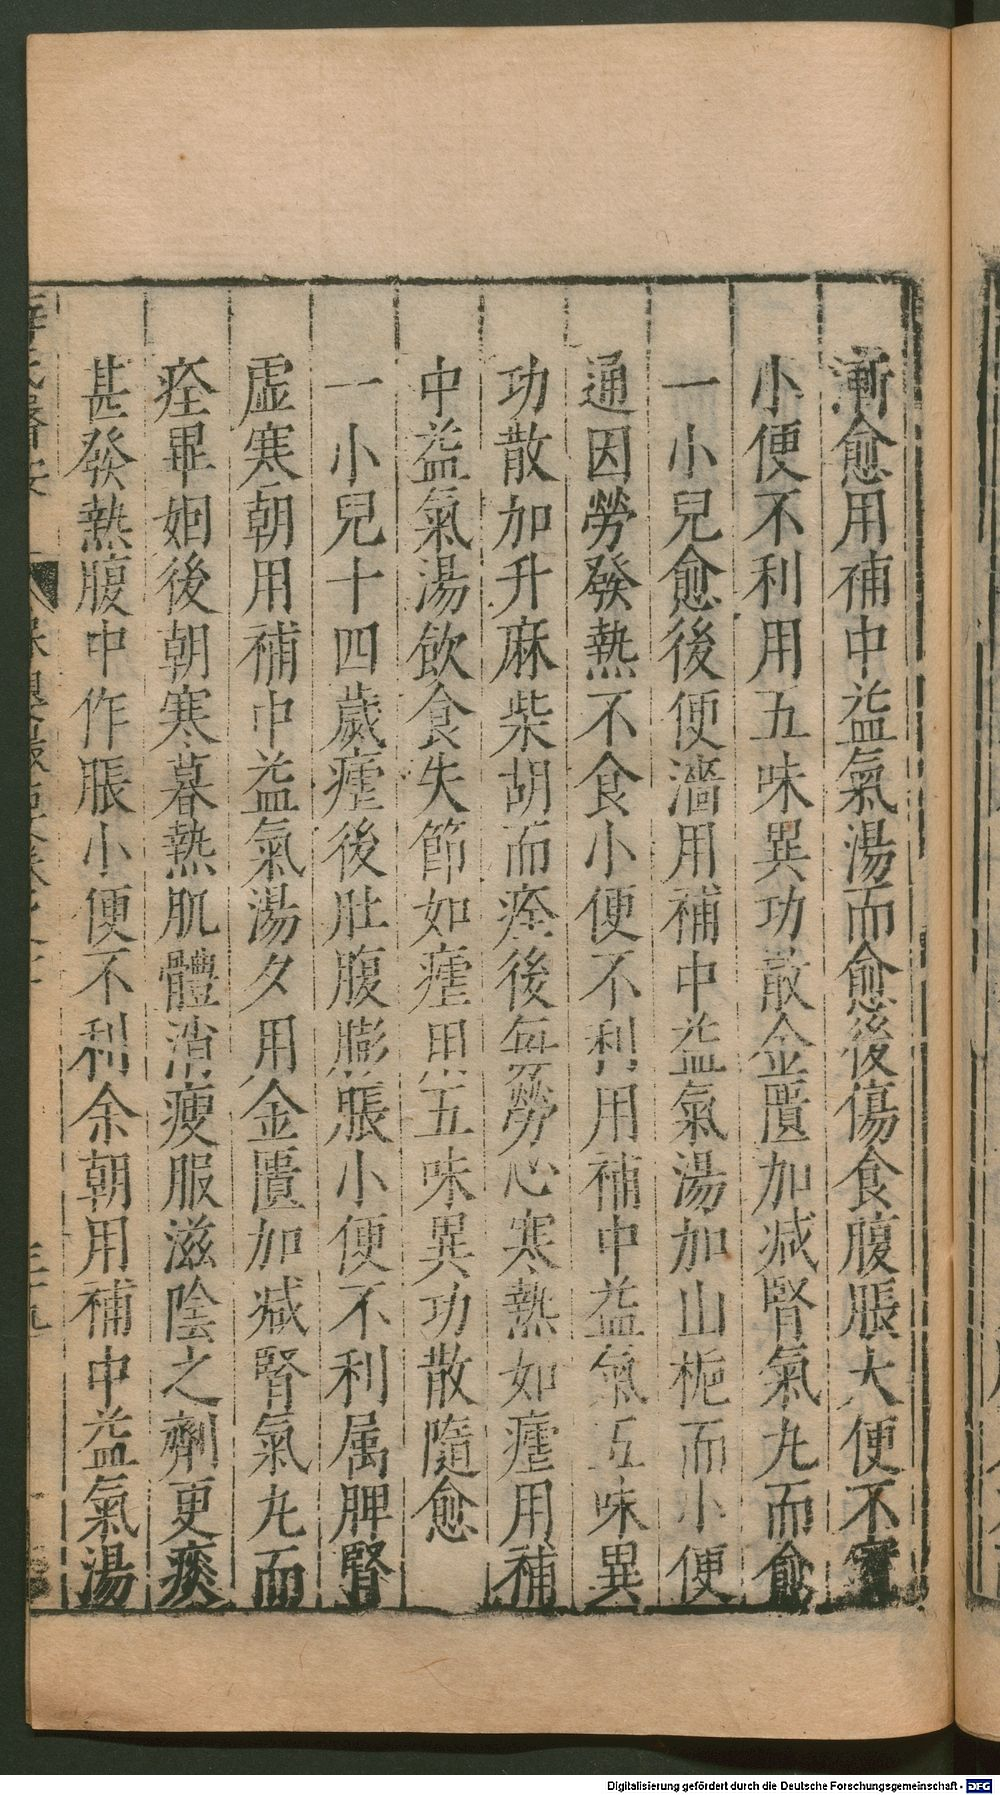 漸愈用補中益氣湯而愈後傷食腹脹大便不實
小便不利用五味異功散金匱加减腎氣丸而愈
一小兒愈後便濇用補中益氣湯加山梔而小便
通因勞發熱不食小便不利用補中益氣五味異
功散加升麻柴胡而痊後每勞心寒熱如瘧用補
中益氣湯飲食失節如瘧用五味異功散隨愈
一小兒十四歲瘧後肚腹膨脹小便不利属脾腎
虛寒朝用補中益氣湯夕用金匱加减腎氣丸而
痊畢姻後朝寒暮熱肌體消瘦服滋陰之劑更痰
甚發熱腹中作脹小便不利余朝用補中益氣湯
Digitalisierung gefördert durch die Deutsche Forschungsgemeinschaft - DFG